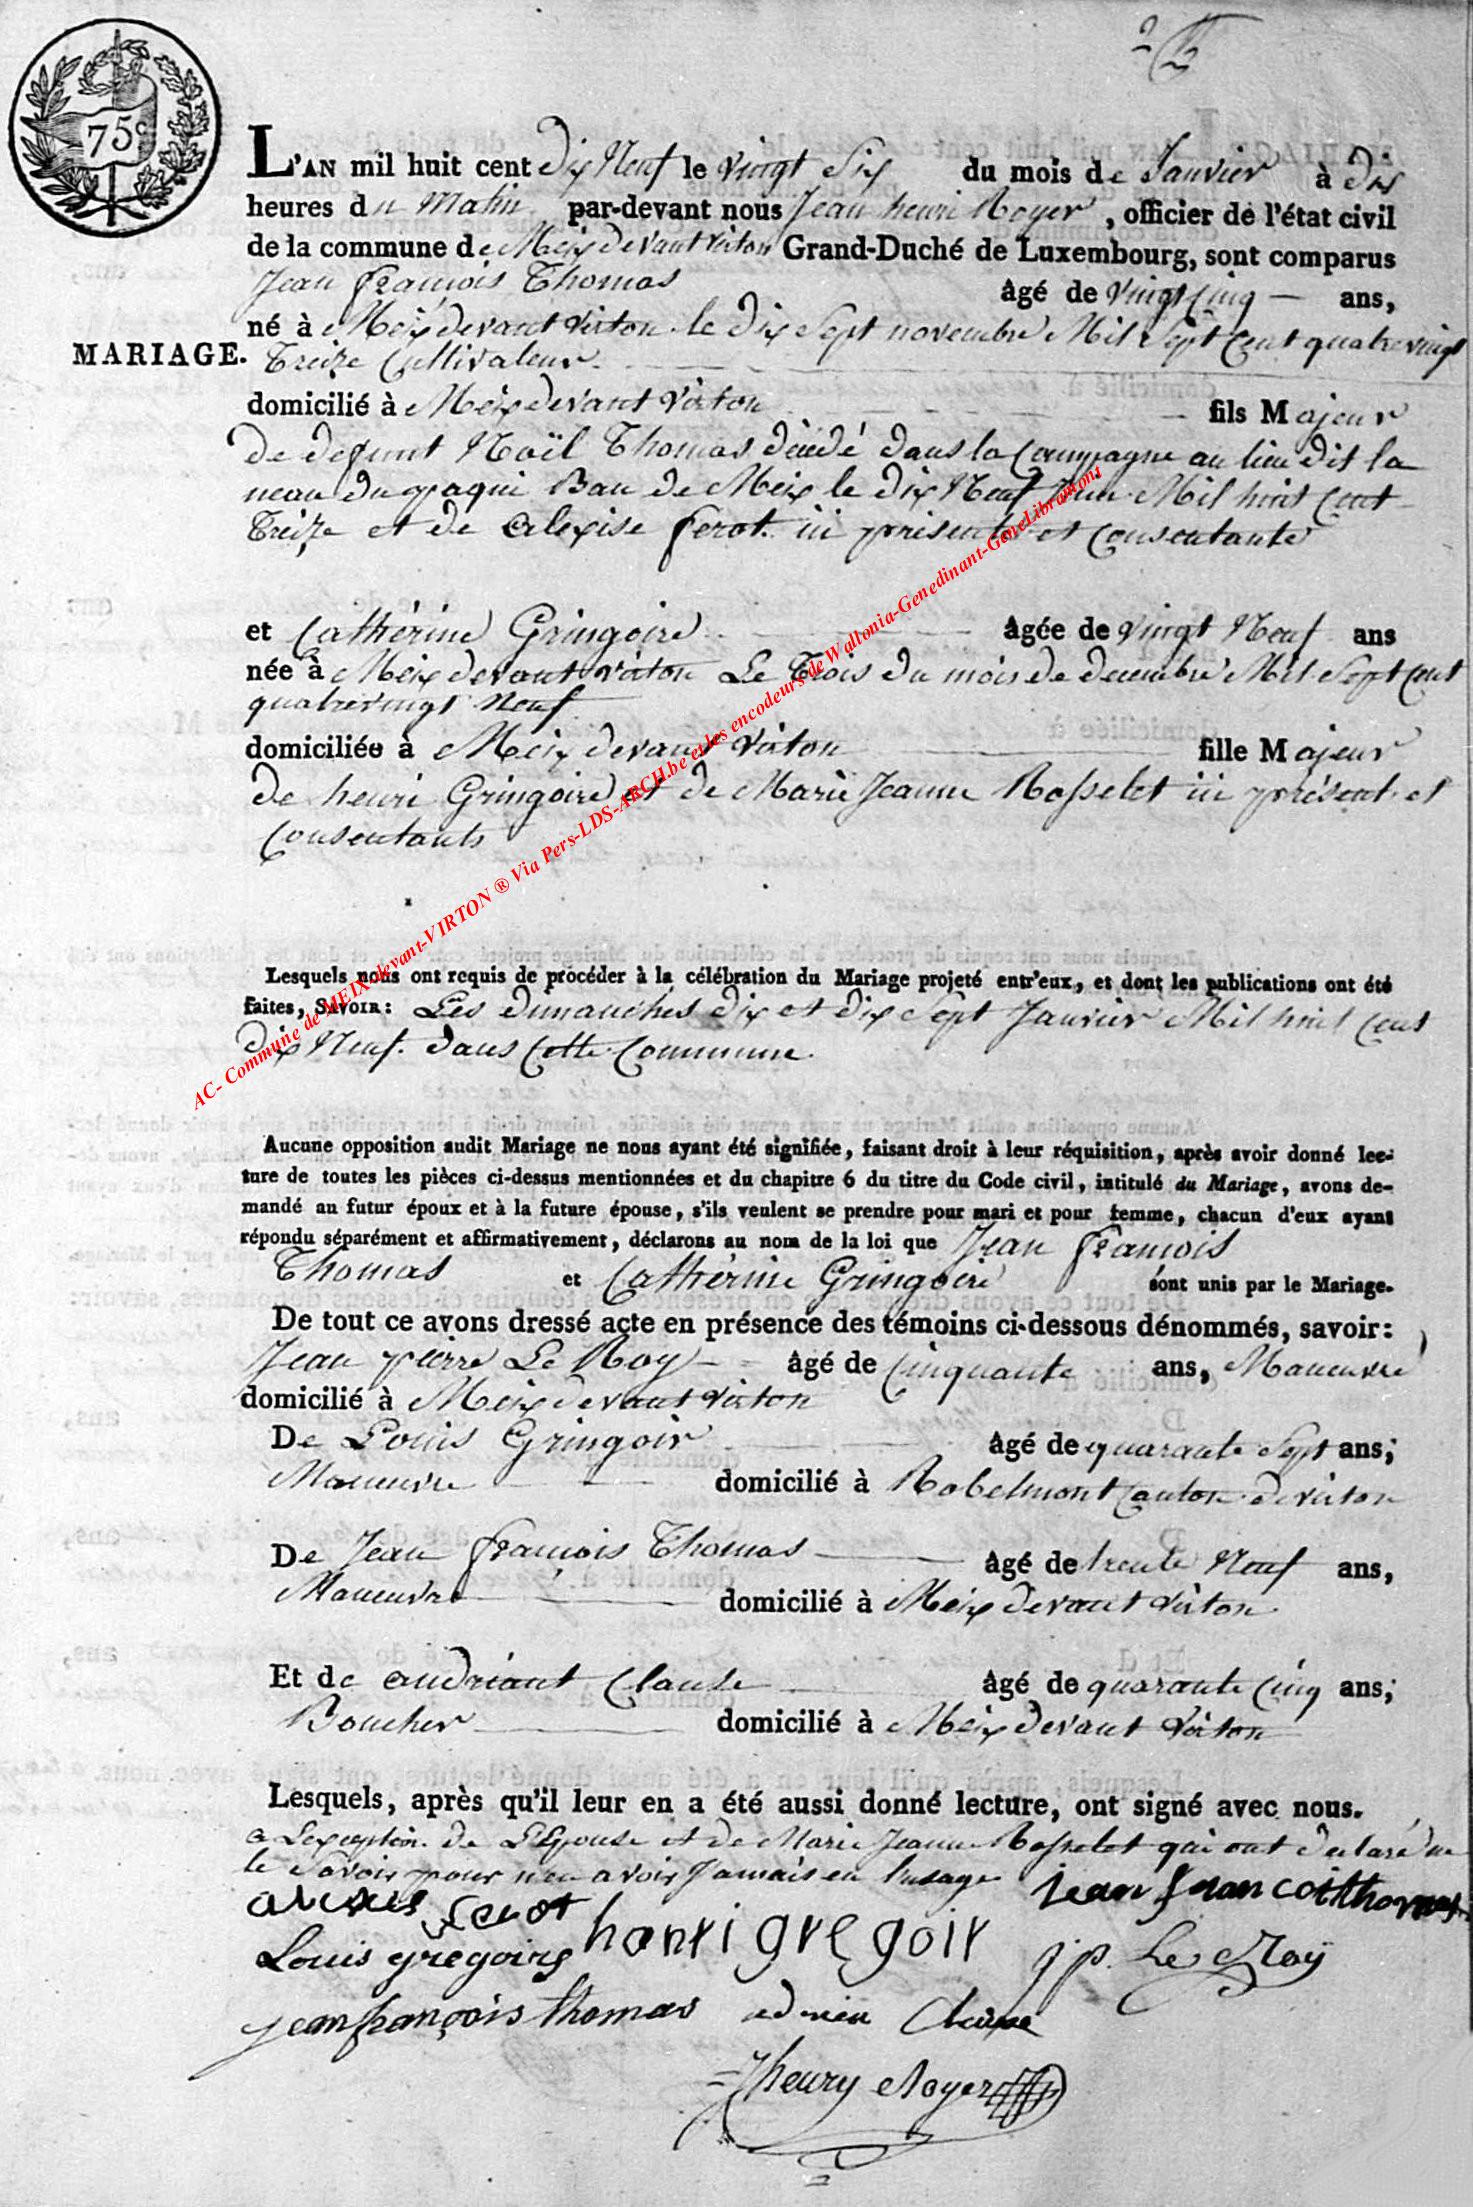 75c
L'AN mil huit cent dix Neuf le vingt Six du mois de Janvier à dix
heures du Matin par-devant nous Jean henri Royer, officier de l'état civil
de la commune de Meix devant virton Grand-Duché de Luxembourg, sont comparus
Jean François Thomas âgé de vingt Cinq ans,
né à Meix devant virton le dix Sept novembre Mil Sept Cent quatre vingt
MARIAGE. Treize Cultivateur
domicilié à Meix devant virton fils Majeur
de defunt Noël Thomas décédé dans la Campagne au lieu dit la
de Meix le dix Neuf Mil huit Cent
Treize et de alexise ferot ici présente et Consentante
et Cathérine Gringoire âgée de vingt Neuf ans
née à Meix devant virton Le Trois du mois de decembre Mil Sept Cent
quatrevingt Neuf
domiciliée à Meix devant virton fille Majeur
de henri Gringoire et de Marie Jeanne Rosselet ici présent et
Consentants
Lesquels nous ont requis de procéder à la célébration du Mariage projeté entr'eux, et dont les publications ont été
faites, SAVOIR: Les dimanches dix et dix Sept Janvier Mil huit Cent
dix Neuf. dans Cette Commune.
Aucune opposition audit Mariage ne nous ayant été signifiée, faisant droit à leur réquisition, après avoir donné lec-
ture de toutes les pièces ci-dessus mentionnées et du chapitre 6 du titre du Code civil, intitulé du Mariage, avons de-
mandé au futur époux et à la future épouse, s'ils veulent se prendre pour mari et pour femme, chacun d'eux ayant
répondu séparément et affirmativement, déclarons au nom de la loi que Jean François
Thomas et Cathérine Gringoire sont unis par le Mariage.
De tout ce avons dressé acte en présence des témoins ci-dessous dénommés, savoir:
Jean pierre Le Roy âgé de Cinquante ans, Maneuvre
domicilié à Meix devant virton
De Louis Gringoir âgé de quarante Sept ans;
Maneuvre domicilié à Robelmont Canton de virton
De Jean François Thomas âgé de trente Neuf ans,
Maneuvre domicilié à Meix devant virton
Et de andriant Clause âgé de quarante Cinq ans;
Boucher domicilié à Meix devant virton
Lesquels, après qu'il leur en a été aussi donné lecture, ont signé avec nous.
a Lexception de L'Epouse et de Marie Jeanne Rosselet qui ont déclaré ne
le Savoir pour n'en avoir Jamais eu l'usage
ferot jean francoit thomas
Louis gregoire henri gregoir jp. Le Roÿ
jean françois thomas adrien Clause
Jhenry Royer
AC- Commune de MEIX-devant-VIRTON ® Via Pers-LDS-ARCH.be et les encodeurs de Wallonia-Genedinant-GeneLibramont